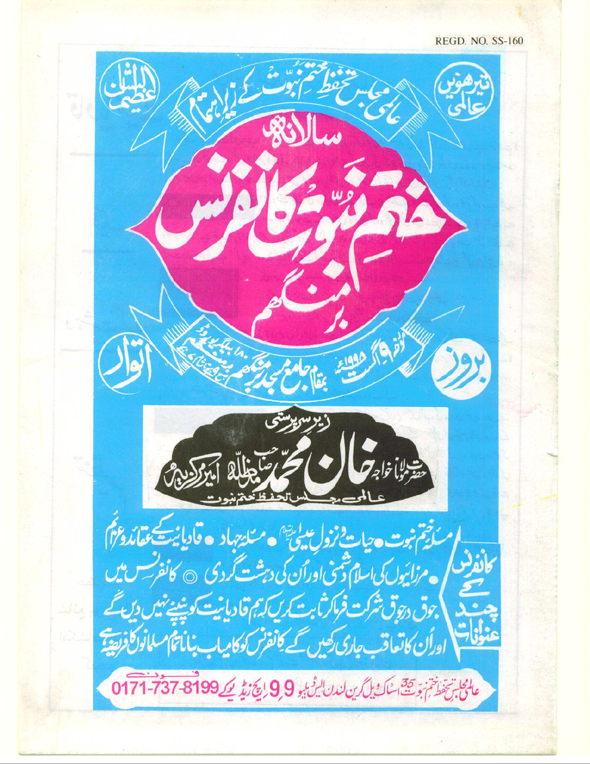 REGD. NO. SS-160
تیرھویں عالمی
عظیم الشان
عالمی مجلس تحفظ ختم نبوت کے زیر اہتمام
سالانہ
ختم نبوت کانفرنس
برمنگھم
بروز
اتوار
مورخہ ۹ اگست ۱۹۹۸ء
بمقام جامع مسجد برمنگھم
زیر سرپرستی
حضرت مولانا خواجہ خان محمد صاحب مدظلہ امیر مرکزیہ
عالمی مجلس تحفظ ختم نبوت
کانفرنس کے چند عنوانات
مسئلہ ختم نبوت • حیات و نزول عیسیٰ علیہ السلام • مسئلہ جہاد • قادیانیت کے عقائد و عزائم
• مرزائیوں کی اسلام دشمنی اور اُن کی دہشت گردی ◎ کانفرنس میں
جوق در جوق شرکت فرما کر ثابت کریں کہ ہم قادیانیت کو پنپنے نہیں دیں گے
اور اُن کا تعاقب جاری رکھیں گے کانفرنس کو کامیاب بنانا تمام مسلمانوں کا فریضہ ہے
عالمی مجلس تحفظ ختم نبوت ۳۵ اسٹاک ویل گرین لندن ایس ڈبلیو 9,9 ایچ زیڈ یو کے فون 0171-737-8199